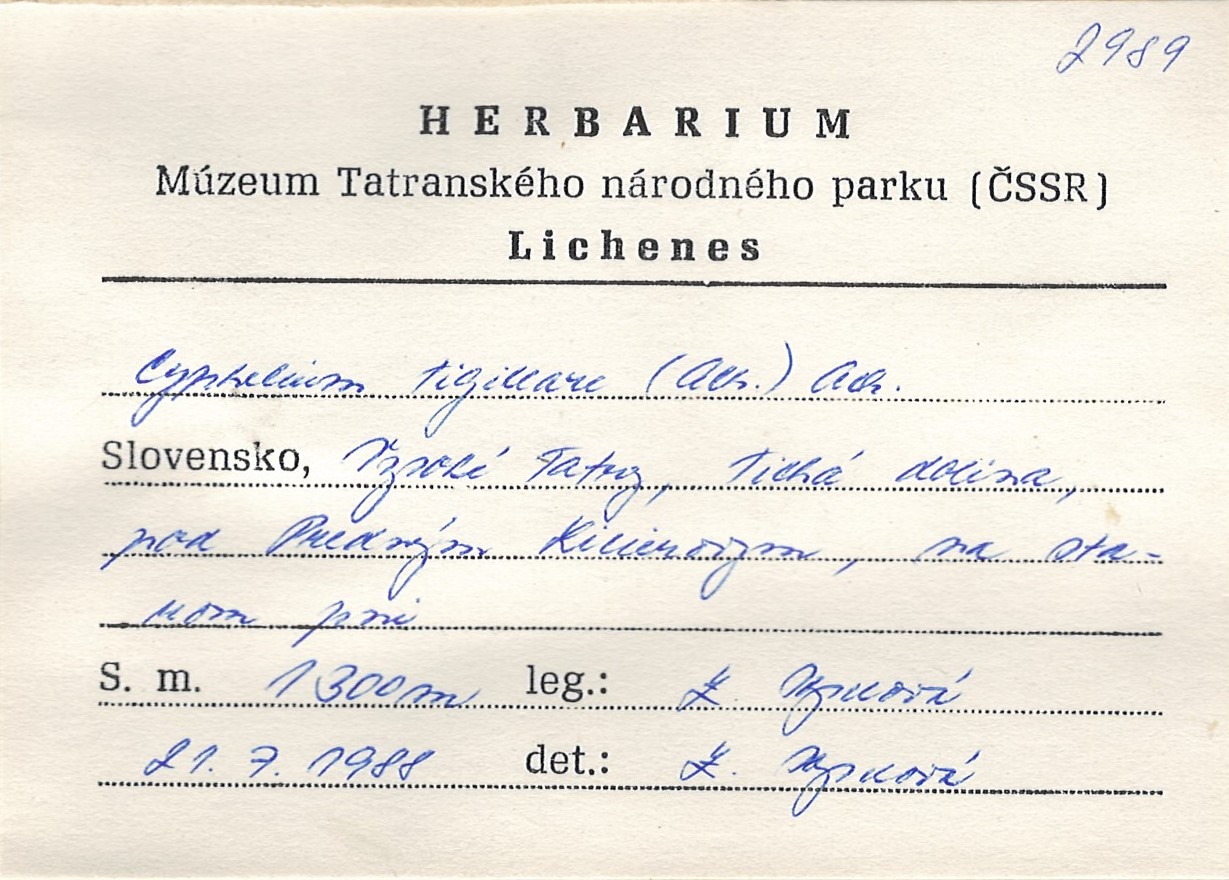 2989
HERBARIUM
Múzeum Tatranského národného parku (ČSSR)
Lichenes
Cyphelium tigillare (Ach.) Ach.
Slovensko, Vysoké Tatry, Tichá dolina,
pod Predným, na sta-
rom pni
S. m. 1300m leg.:
21. 7. 1988 det.: